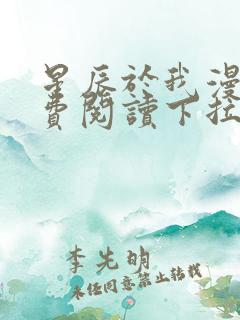 星辰於我漫
費閱讀下拉
李先明
未经同意禁止转载